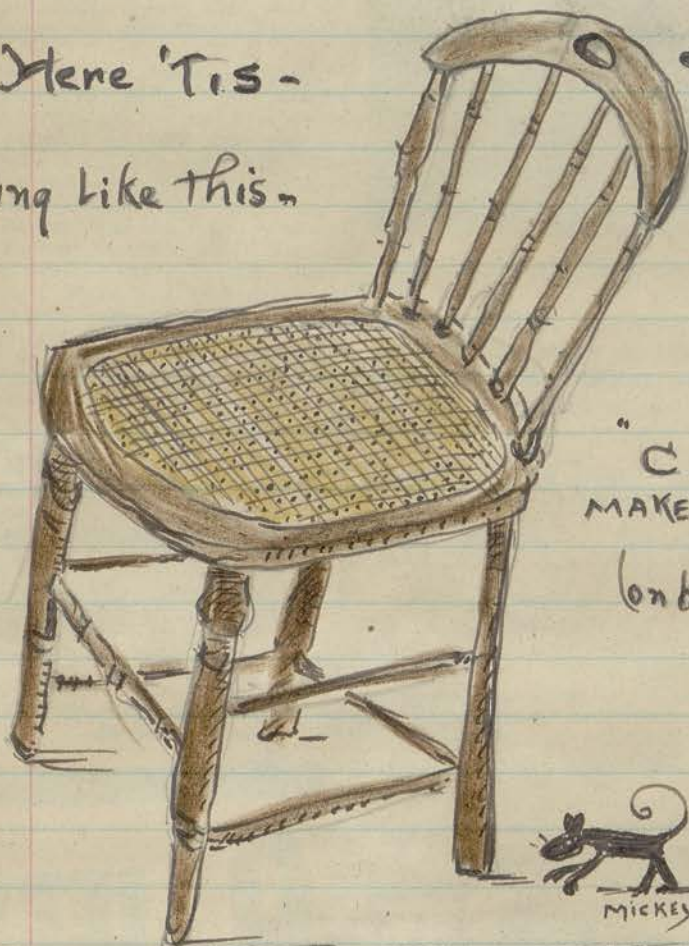 Here 'Tis-
ing Like this-
"C
MAKE
(on b
MICKEY